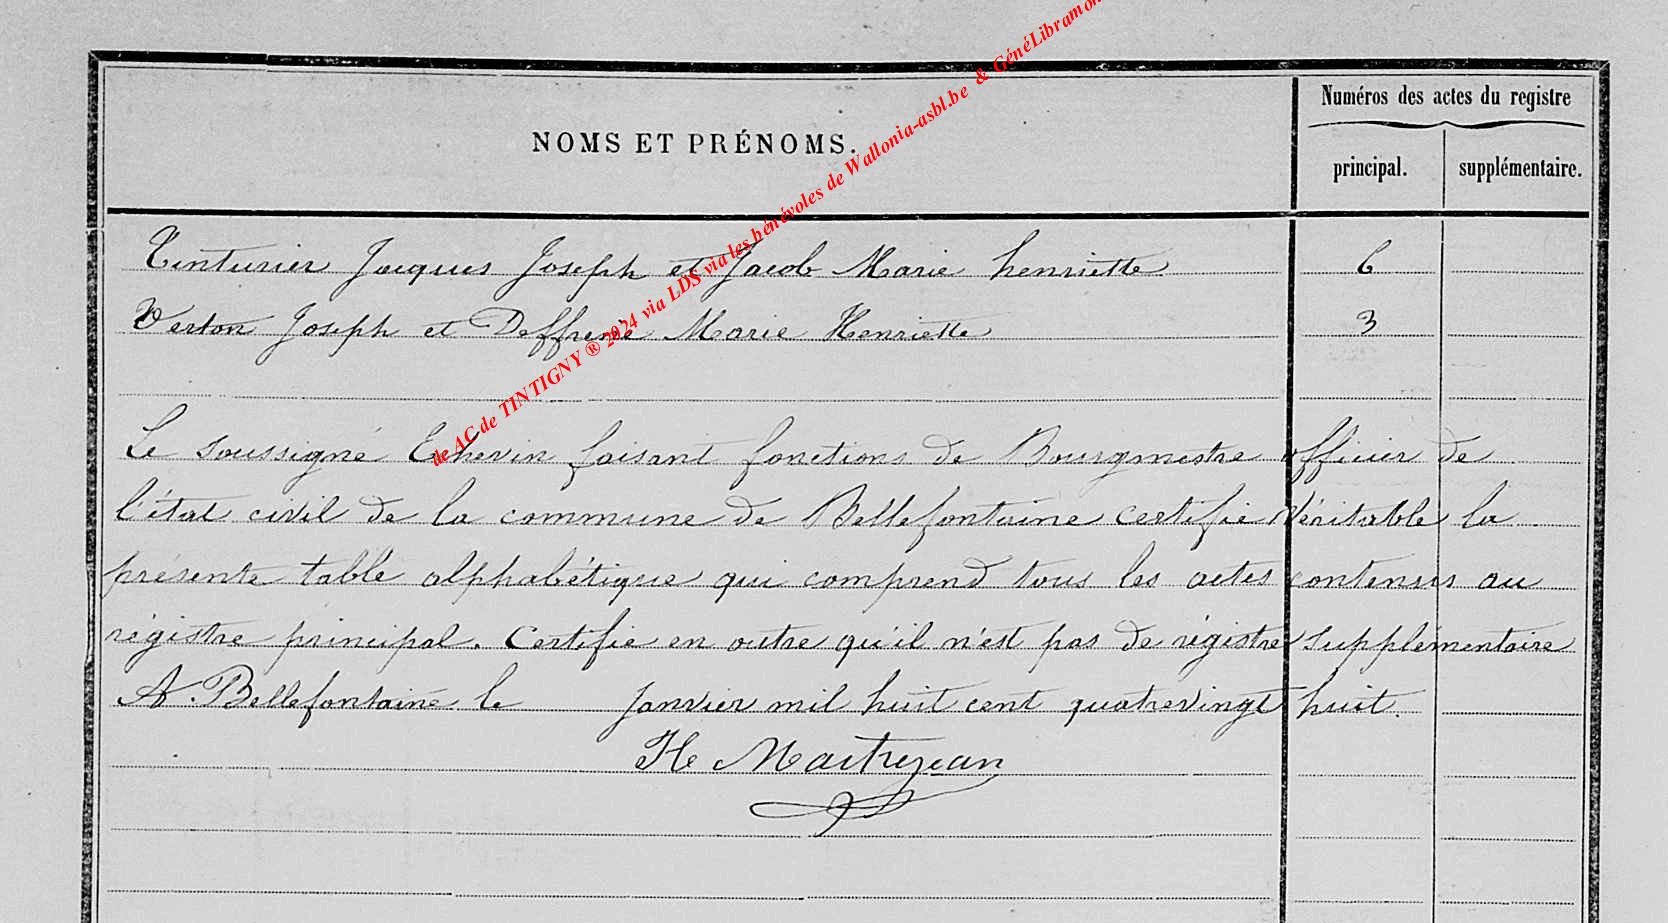 Numéros des actes du registre
NOMS ET PRÉNOMS.
principal. supplémentaire.
de AC de TINTIGNY ® 2024 via LDS via les bénévoles de Wallonia-asbl.be & GénéLibramon
Tinturier Jacques Joseph et Jacob Marie henriette 6
Verton Joseph et Deffrené Marie Henriette 3
Le soussigné Echevin faisant fonctions de Bourgmestre officier de
l'état civil de la commune de Bellefontaine certifie véritable la
présente table alphabétique qui comprend tous les actes contenus au
régistre principal. Certifie en outre qu'il n'est pas de régistre supplémentaire
A Bellefontaine le Janvier mil huit cent quatrevingt huit.
H Maitrejean